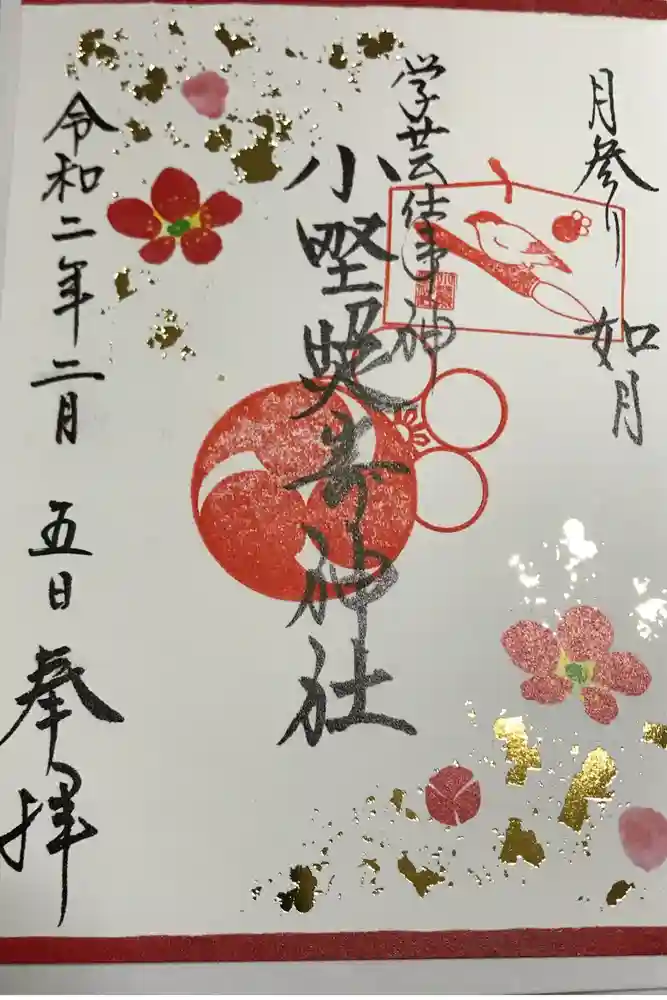 月参り 如月
学芸仕事神
小野照崎神社
令和二年二月 五日 奉拝